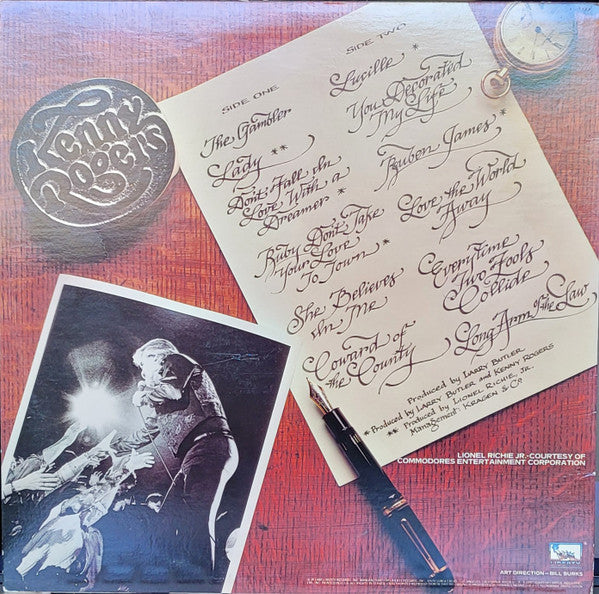 Kenny
Rogers
SIDE ONE
The Gambler
Lady **
Don't Fall In
Love With a
Dreamer *
Ruby Don't Take
Your Love
To Town *
She Believes
In Me
Coward of
the County
SIDE TWO
Lucille *
You Decorated
My Life
Reuben James *
Love the World
Away
Everytime
Two Fools
Collide
Long Arm of the Law
Produced by LARRY BUTLER
* Produced by LARRY BUTLER and KENNY ROGERS
** Produced by LIONEL RICHIE JR.
Management: KRAGEN & CO
LIONEL RICHIE JR.-COURTESY OF
COMMODORES ENTERTAINMENT CORPORATION
LIBERTY
ART DIRECTION—BILL BURKS